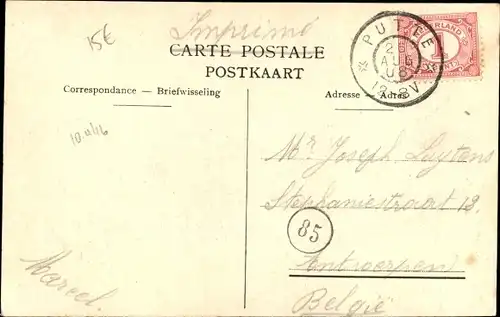 15€
Imprimé
CARTE POSTALE
POSTKAART
Correspondance — Briefwisseling
Adresse — Adres
PUTTE
AUG
08
12-8V
NEDERLAND
1
CENT
10446
Mr Joseph Luytens
Stephaniestraat 18.
85
Antwerpen
België
Marcel.